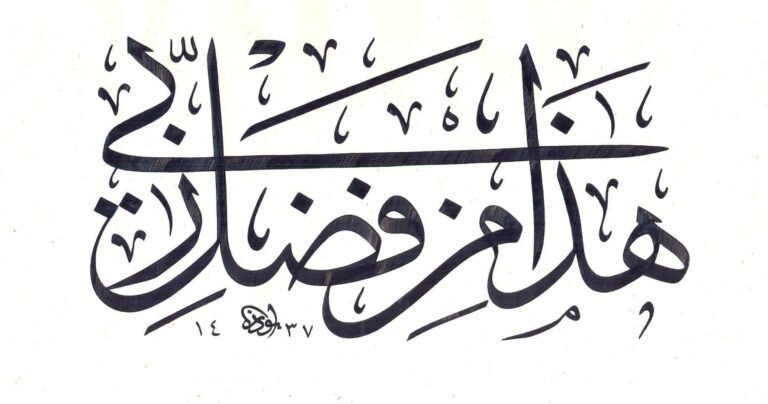 هذا من فضل ربي
١٤٣٧